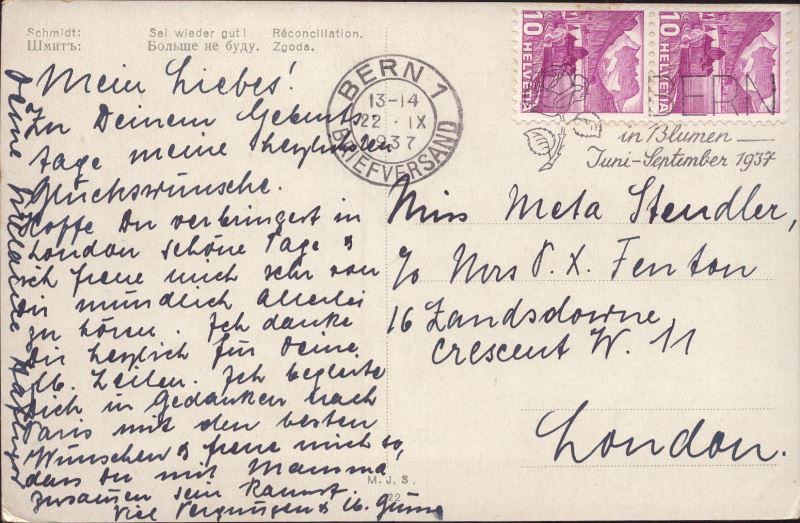 Schmidt: Sei wieder gut! Réconciliation.
Шмитъ: Больше не буду. Zgoda.
Mein Liebes!
Zu Deinem Geburts
tage meine herzlichsten
Glückswünsche.
Hoffe Du verbringest in
London schöne Tage &
ich freue mich sehr von
Dir mündlich Allerlei
zu hören. Ich danke
Dir herzlich für Deine
lb. Zeilen. Ich begleite
Dich in Gedanken nach
Paris mit den besten
Wünschen & freue mich so,
dass Du mit Mamma
zusammen sein kannst.
Viel Vergnügen & lb. Grüsse
Deine
BERN 1
13-14
22 IX
1937
BRIEFVERSAND
10 HELVETIA
10 HELVETIA
BERN
in Blumen
Juni-September 1937
Miss Meta Stendler,
c/o Mrs P. X. Fenton
16 Landsdowne
Crescent W. 11
London.
M. J. S.
22